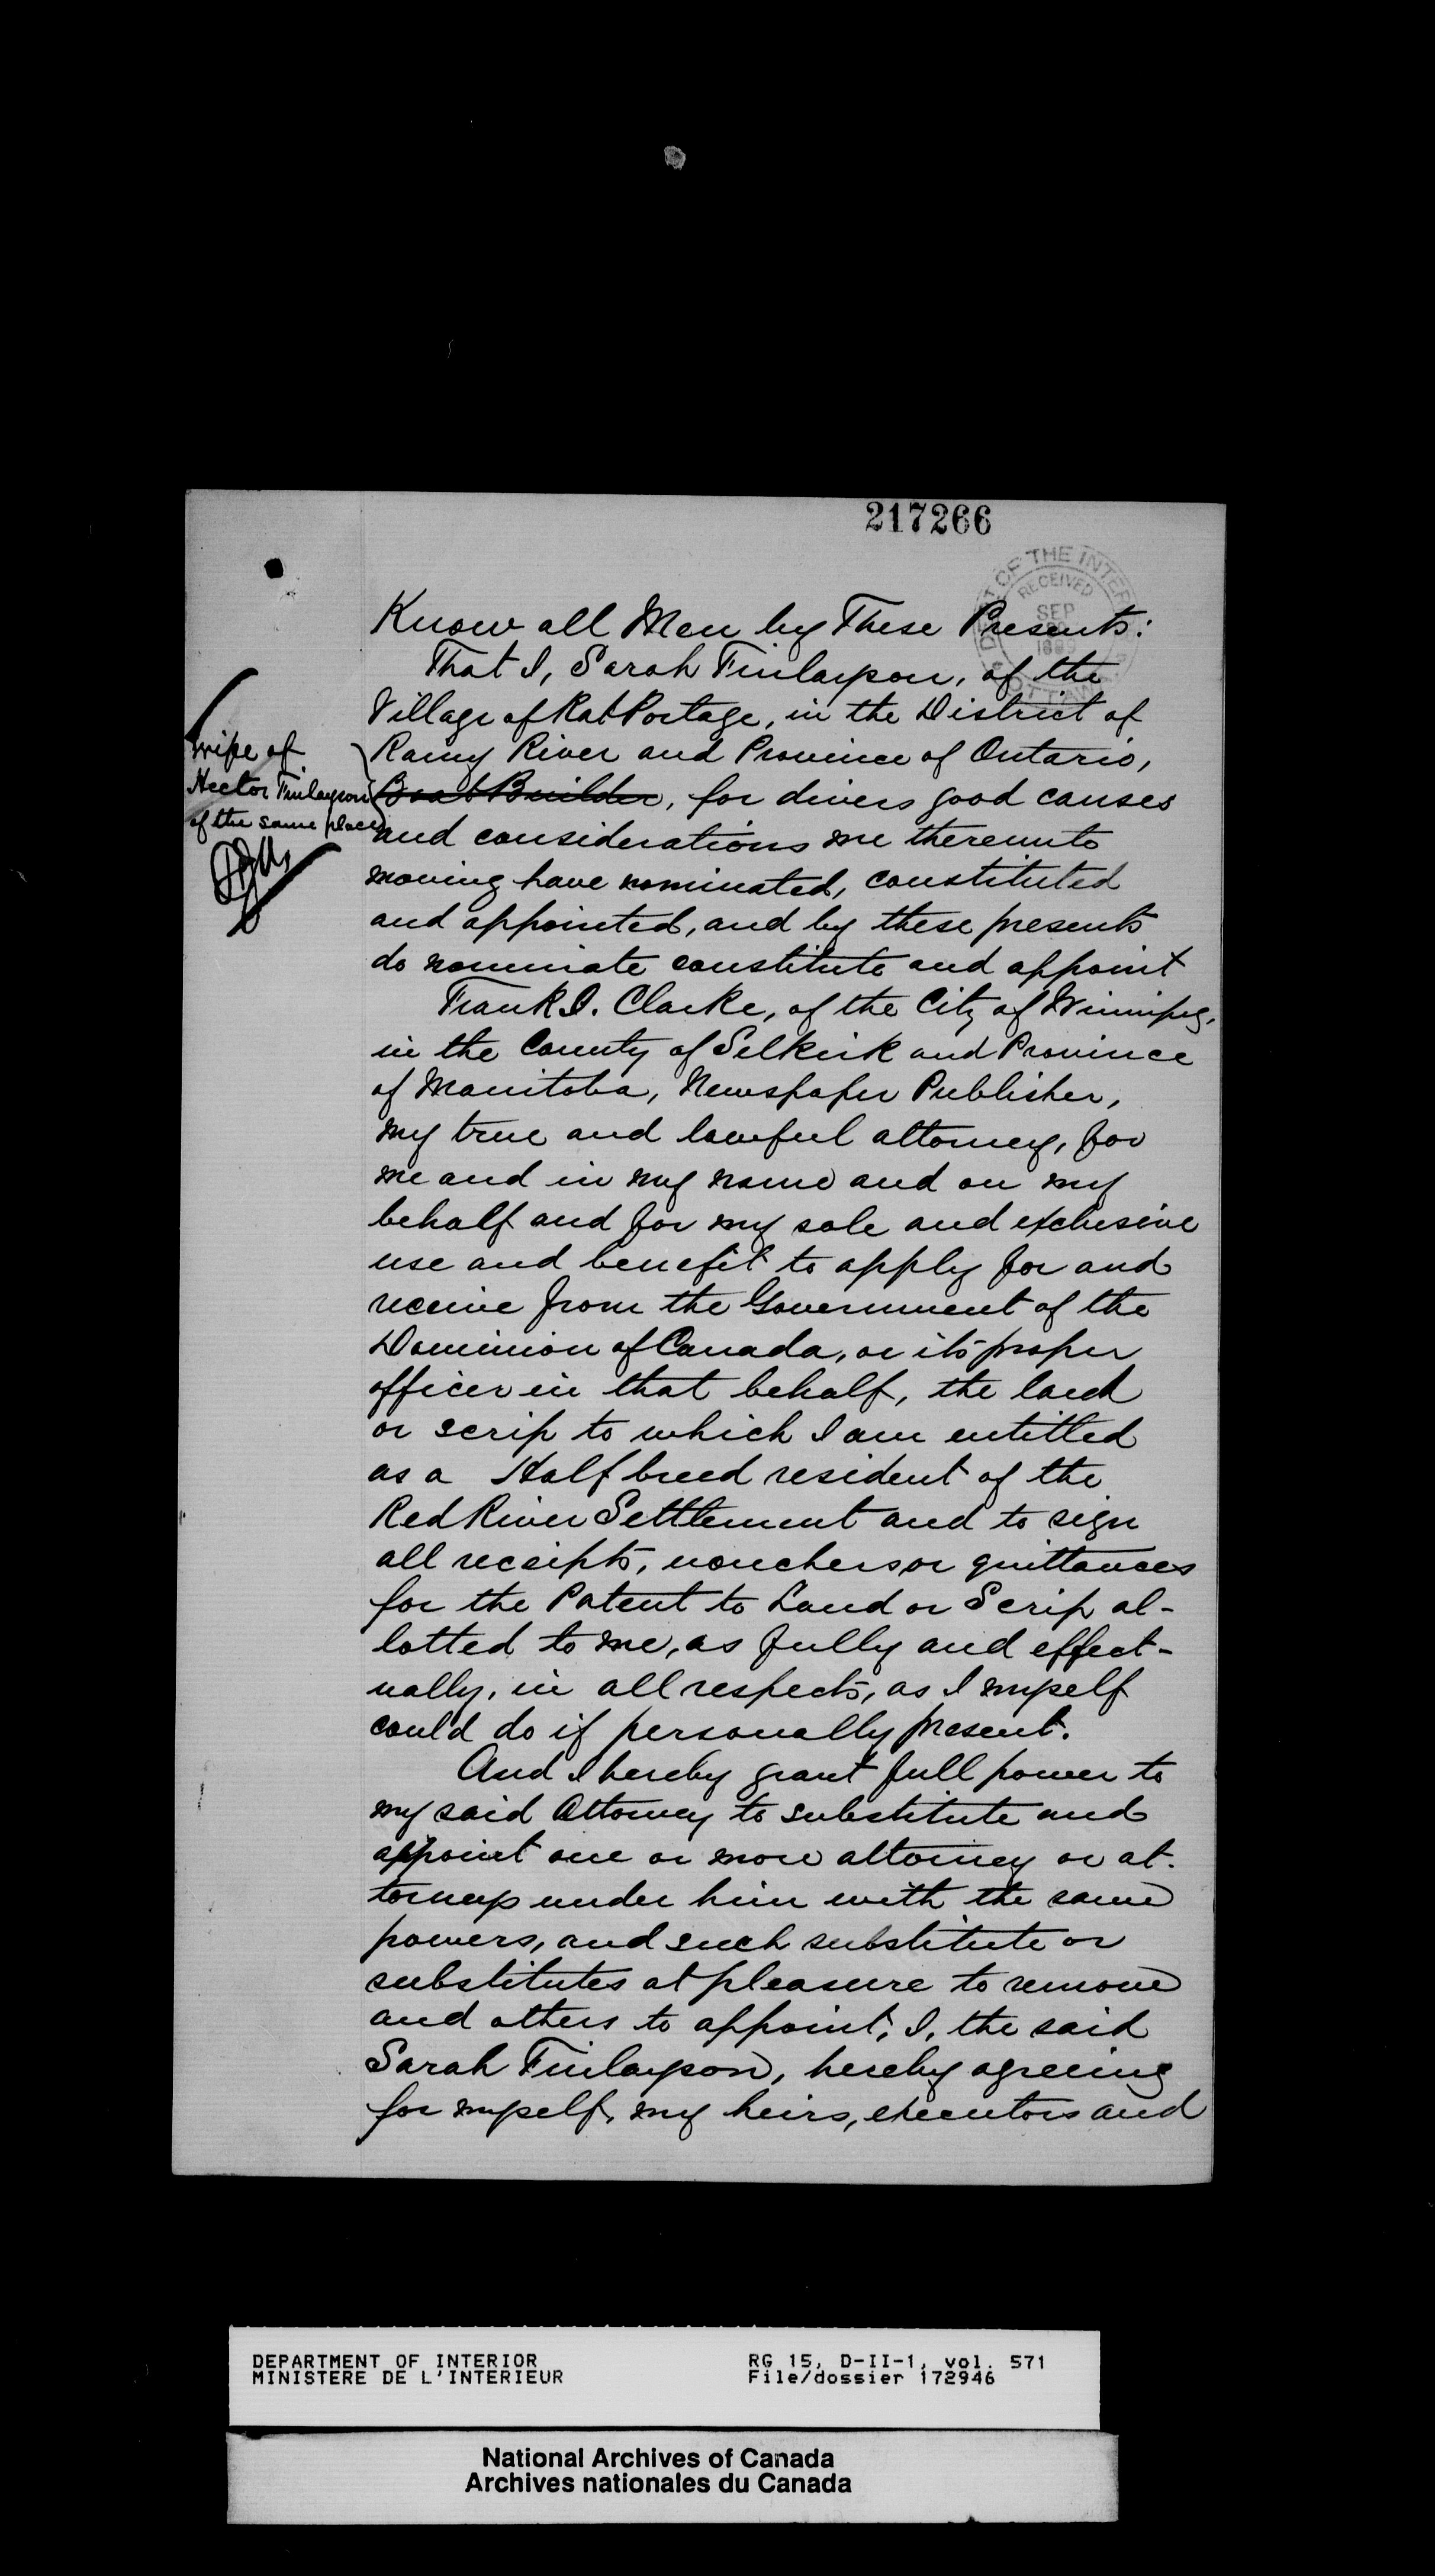 217266
DEPT OF THE INTERIOR
RECEIVED
SEP
OTTAWA
Know all Men by These Presents:
That I, Sarah Finlayson, of the
Village of Rat Portage, in the District of
Rainy River and Province of Ontario,
wife of
Hector Finlayson
of the same place
Boat Builder, for divers good causes
and considerations me thereunto
moving have nominated, constituted
and appointed, and by these presents
do nominate constitute and appoint
Frank I. Clarke, of the City of Winnipeg,
in the County of Selkirk and Province
of Manitoba, Newspaper Publisher,
my true and lawful attorney, for
me and in my name and on my
behalf and for my sole and exclusive
use and benefit to apply for and
receive from the Government of the
Dominion of Canada, or its proper
officer in that behalf, the land
or scrip to which I am entitled
as a Half breed resident of the
Red River Settlement and to sign
all receipts, vouchers or quittances
for the Patent to Land or Scrip al-
lotted to me, as fully and effect-
ually, in all respects, as I myself
could do if personally present.
And I hereby grant full power to
my said Attorney to substitute and
appoint one or more attorney or at-
torneys under him with the same
powers, and such substitute or
substitutes at pleasure to remove
and others to appoint; I, the said
Sarah Finlayson, hereby agreeing
for myself, my heirs, executors and
DEPARTMENT OF INTERIOR
MINISTERE DE L'INTERIEUR
RG 15, D-II-1, vol. 571
File/dossier 172946
National Archives of Canada
Archives nationales du Canada